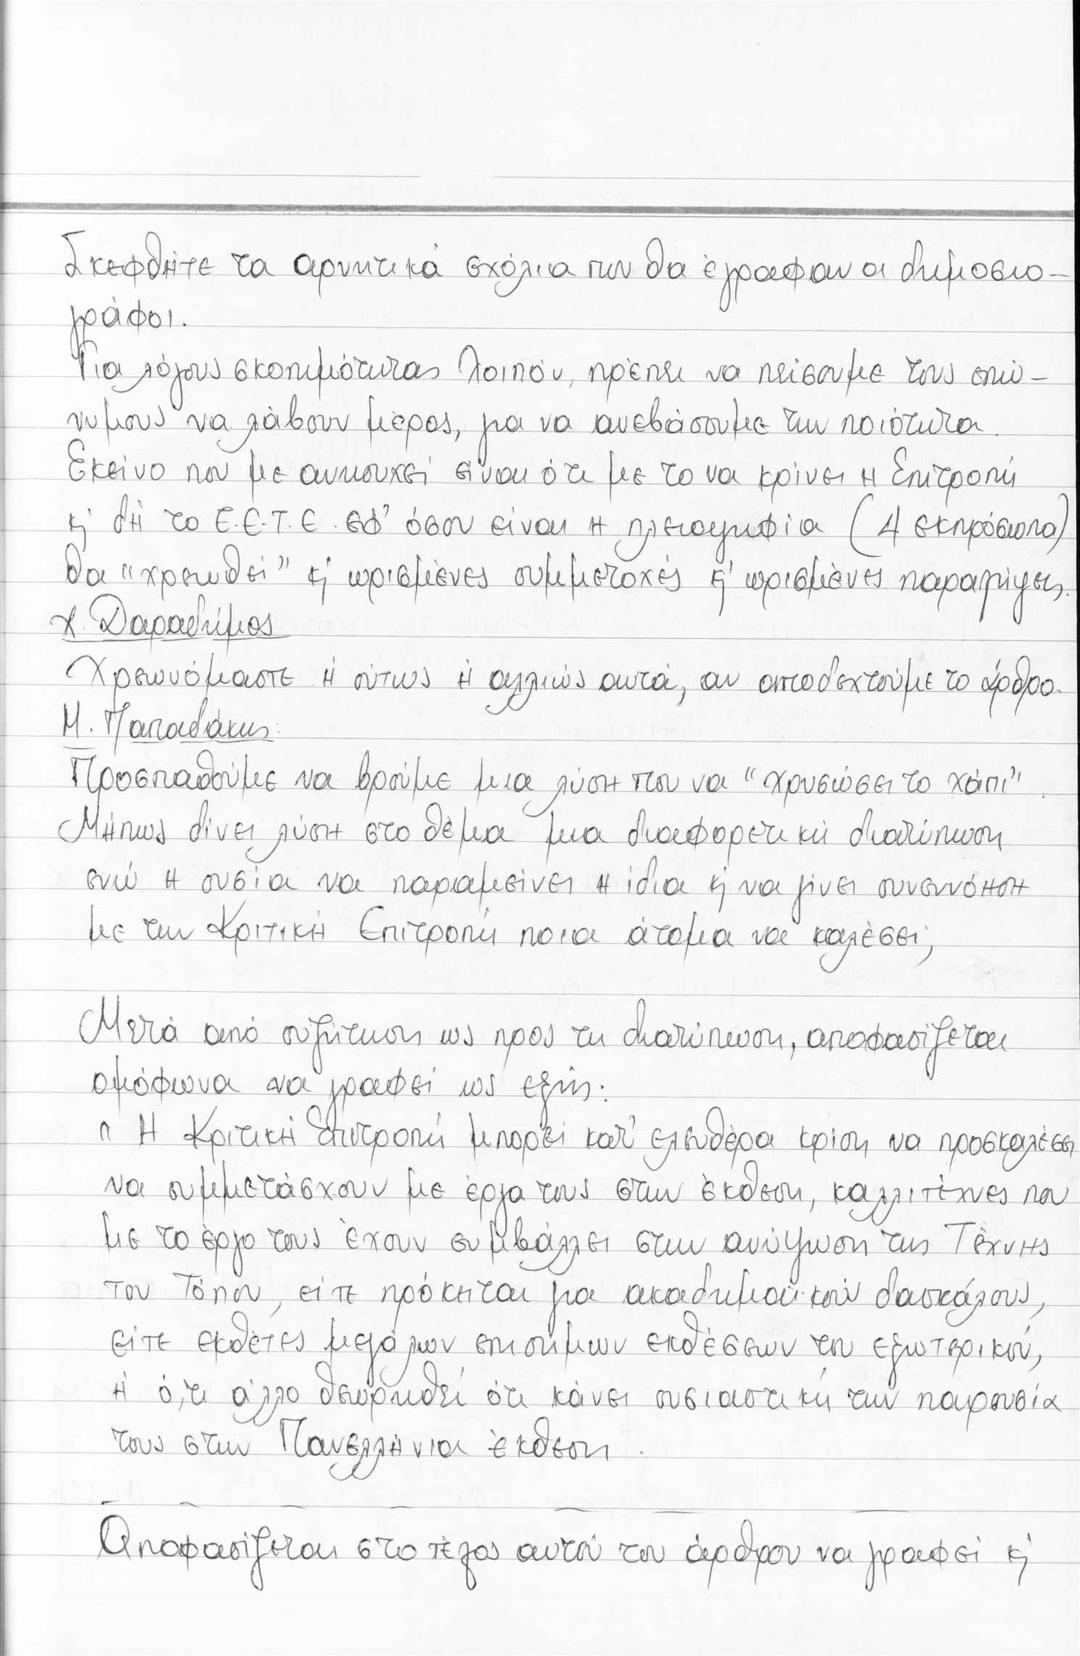 Σκεφθήτε τα αρνητικά σχόλια που θα έγραφαν οι δημοσιο-
γράφοι.
Για λόγους σκοπιμότητας λοιπόν, πρέπει να πείσουμε τους επώ-
νυμους να λάβουν μέρος, για να ανεβάσουμε την ποιότητα.
Εκείνο που με ανησυχεί είναι ότι με το να κρίνει η Επιτροπή
κ' δη το Ε.Ε.Τ.Ε. εφ' όσον είναι η πλειοψηφία (4 εκπρόσωποι)
θα "χρεωθεί" κ' ωρισμένες συμμετοχές κ' ωρισμένες παραλήψεις.
Χ. Δαραδήμος
Χρεωνόμαστε ή ούτως ή αλλιώς αυτά, αν αποδεχτούμε το άρθρο.
Μ. Παπαδάκης:
Προσπαθούμε να βρούμε μια λύση που να "χρυσώσει το χάπι".
Μήπως δίνει λύση στο θέμα μια διαφορετική διατύπωση
ενώ η ουσία να παραμείνει η ίδια κ' να γίνει συνεννόηση
με την Κριτική Επιτροπή ποια άτομα να καλέσει;
Μετά από συζήτηση ως προς τη διατύπωση, αποφασίζεται
ομόφωνα να γραφεί ως εξής:
" Η Κριτική Επιτροπή μπορεί κατ' ελευθέρα κρίση να προσκαλέσει
να συμμετάσχουν με έργα τους στην έκθεση, καλλιτέχνες που
με το έργο τους έχουν συμβάλλει στην ανύψωση της Τέχνης
του Τόπου, είτε πρόκειται για ακαδημαϊκούς δασκάλους,
είτε εκθέτες μεγάλων επισήμων εκθέσεων του εξωτερικού,
ή ό,τι άλλο θεωρηθεί ότι κάνει ουσιαστική την παρουσία
τους στην Πανελλήνια έκθεση.
Αποφασίζεται στο τέλος αυτού του άρθρου να γραφεί κ'